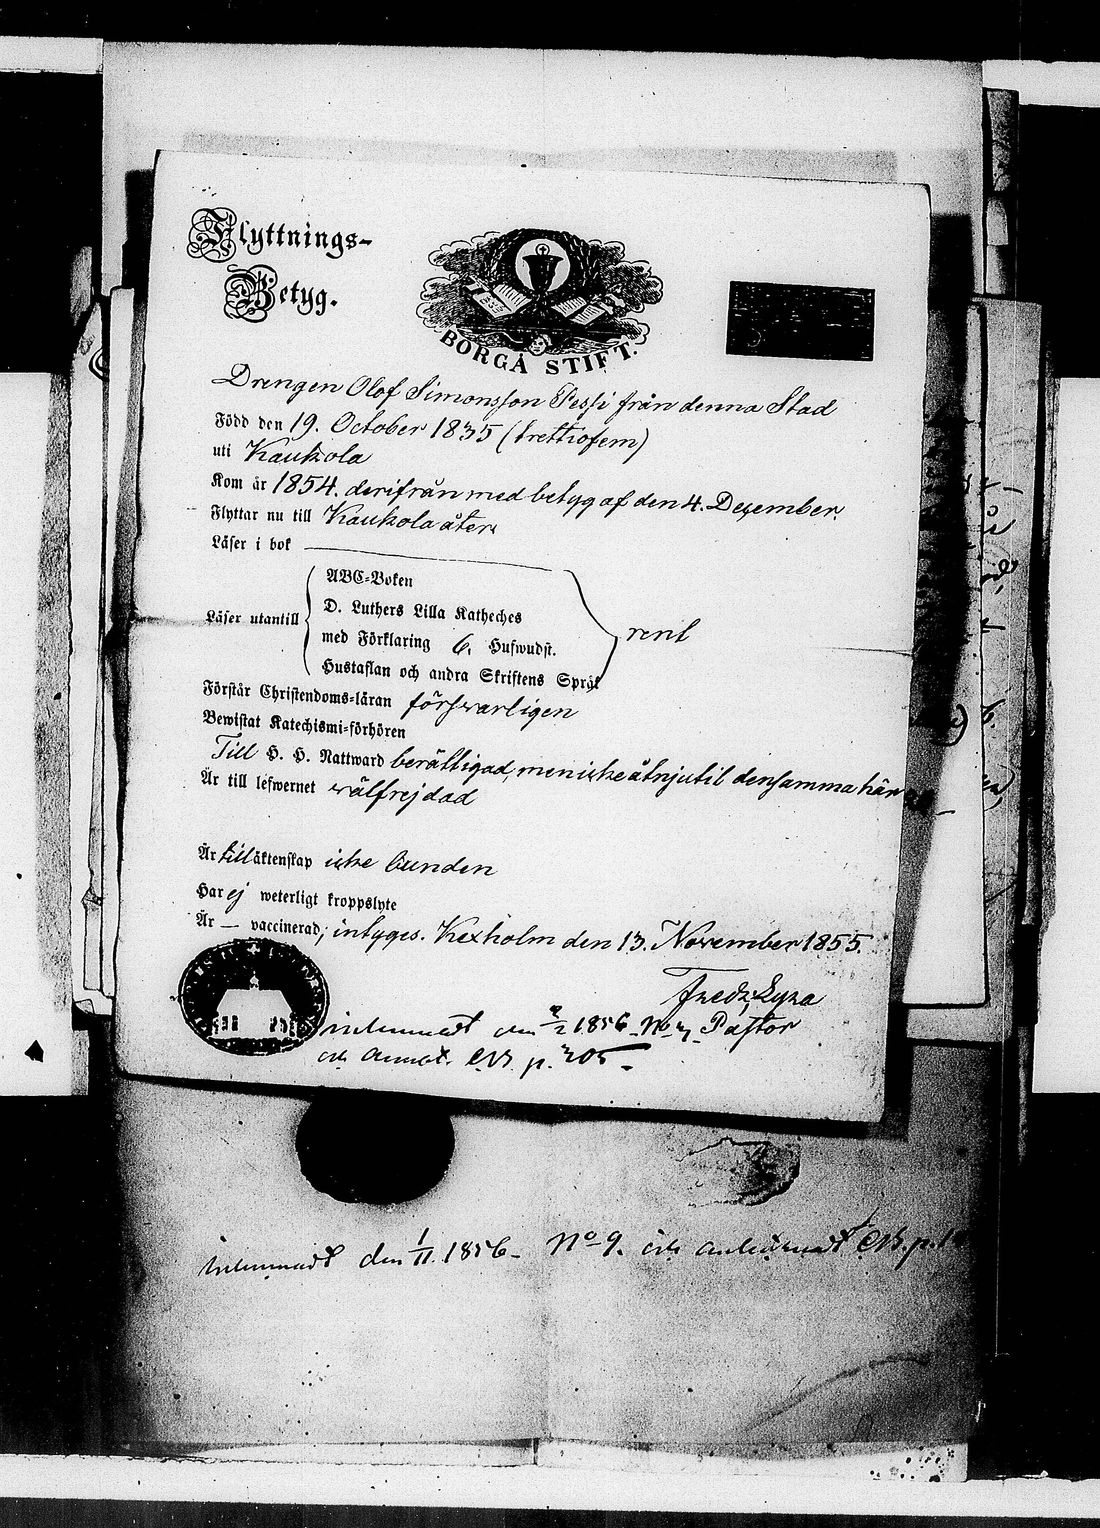 Flyttnings-
Betyg.
BORGÅ STIFT.
Drengen Olof Simonsson Pessi från denna Stad
Född den 19. October 1835 (trettiofem)
uti Kaukola
Kom år 1854. derifrån med betyg af den 4. December.
Flyttar nu till Kaukola åter.
Läser i bok
Läser utantill
ABC-Boken
D. Luthers Lilla Katheches
med Förklaring 6. Hufwudst.
Hustaflan och andra Skriftens Språk
rent
Förstår Christendoms-läran försvarligen
Bewistat Katechismi-förhören
Till H. H. Nattward berättigad, men icke åtnjutit densamma här
Är till lefwernet välfrejdad
Är till äktenskap icke bunden
Har ej weterligt kroppslyte
Är — vaccinerad; intygas. Kexholm den 13. November 1855.
Fredr. Lyra
Pastor
inlemnadt den 1856 - No
och annot. CB. p. 205.
inlemnadt den 1/11 1856 - No 9. och CB. p.